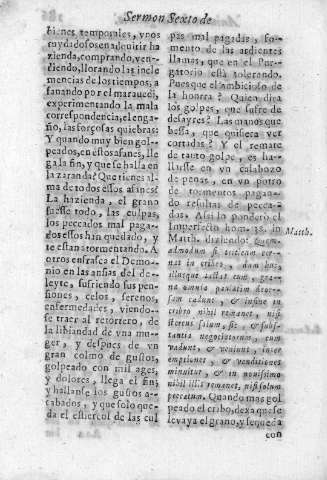 Sermon Sexto de
bienes temporales, vnos
cuydadosos en adquirir ha
zienda, comprando, ven-
diendo, llorando las incle
mencias de los tiempos, a
fanando por el marauedi,
experimentando la mala
correspondencia, el enga-
ño, las forçosas quiebras:
Y quando muy bien gol-
peados, en estos afanes, lle
ga la fin, y que se halla en
la zaranda? Que tiene al
ma de todos estos afanes?
La hazienda, el grano
fuesse todo, las culpas,
los peccados mal paga-
dos essos han quedado, y
te estan atormentando. A
otros enfrasca el Demo-
nio en las ansias del de-
leyte, sufriendo sus pen-
siones, celos, serenos,
enfermedades, viendo-
se traer al retortero, de
la libiandad de vna mu-
ger, y despues de vn
gran colmo de gustos,
golpeado con mil ayes,
y dolores, llega el fin,
y hallanse los gustos a-
cabados, y que solo que-
da el estiercol de las cul
pas mal pagadas, fo-
mento de las ardientes
llamas, que en el Pur-
gatorio està tolerando.
Pues que el ambicioso de
la honrra? Quien dirà
los golpes, que sufre de
desayres? Las manos que
bessa, que quisiera ver
cortadas? Y el remate
de tanto golpe, es ha-
llarse en vn calabozo
de penas, en vn potro
de tormentos pagan-
do resultas de pecca-
dos. Assi lo pondero el
Imperfecto hom. 38. in
Matth. diziendo: Quem-
Matth.
admodum si triticum cer-
nat in cribro, dum huc,
illucque iactat eum, gra-
na omnia paulatim deor-
sum cadunt, & insine in
cribro nihil remanet, nisi
stercus solum, sic, & sub-
stantia negotiatorum, cum
vadunt, & veniunt, inter
emptiones, & venditiones
minuitur, & in nouissimo
nihil illis remanet, nisi solum
peccatum. Quando mas gol
peado el cribo, dexa que se
le vaya el grano, y se queda
con